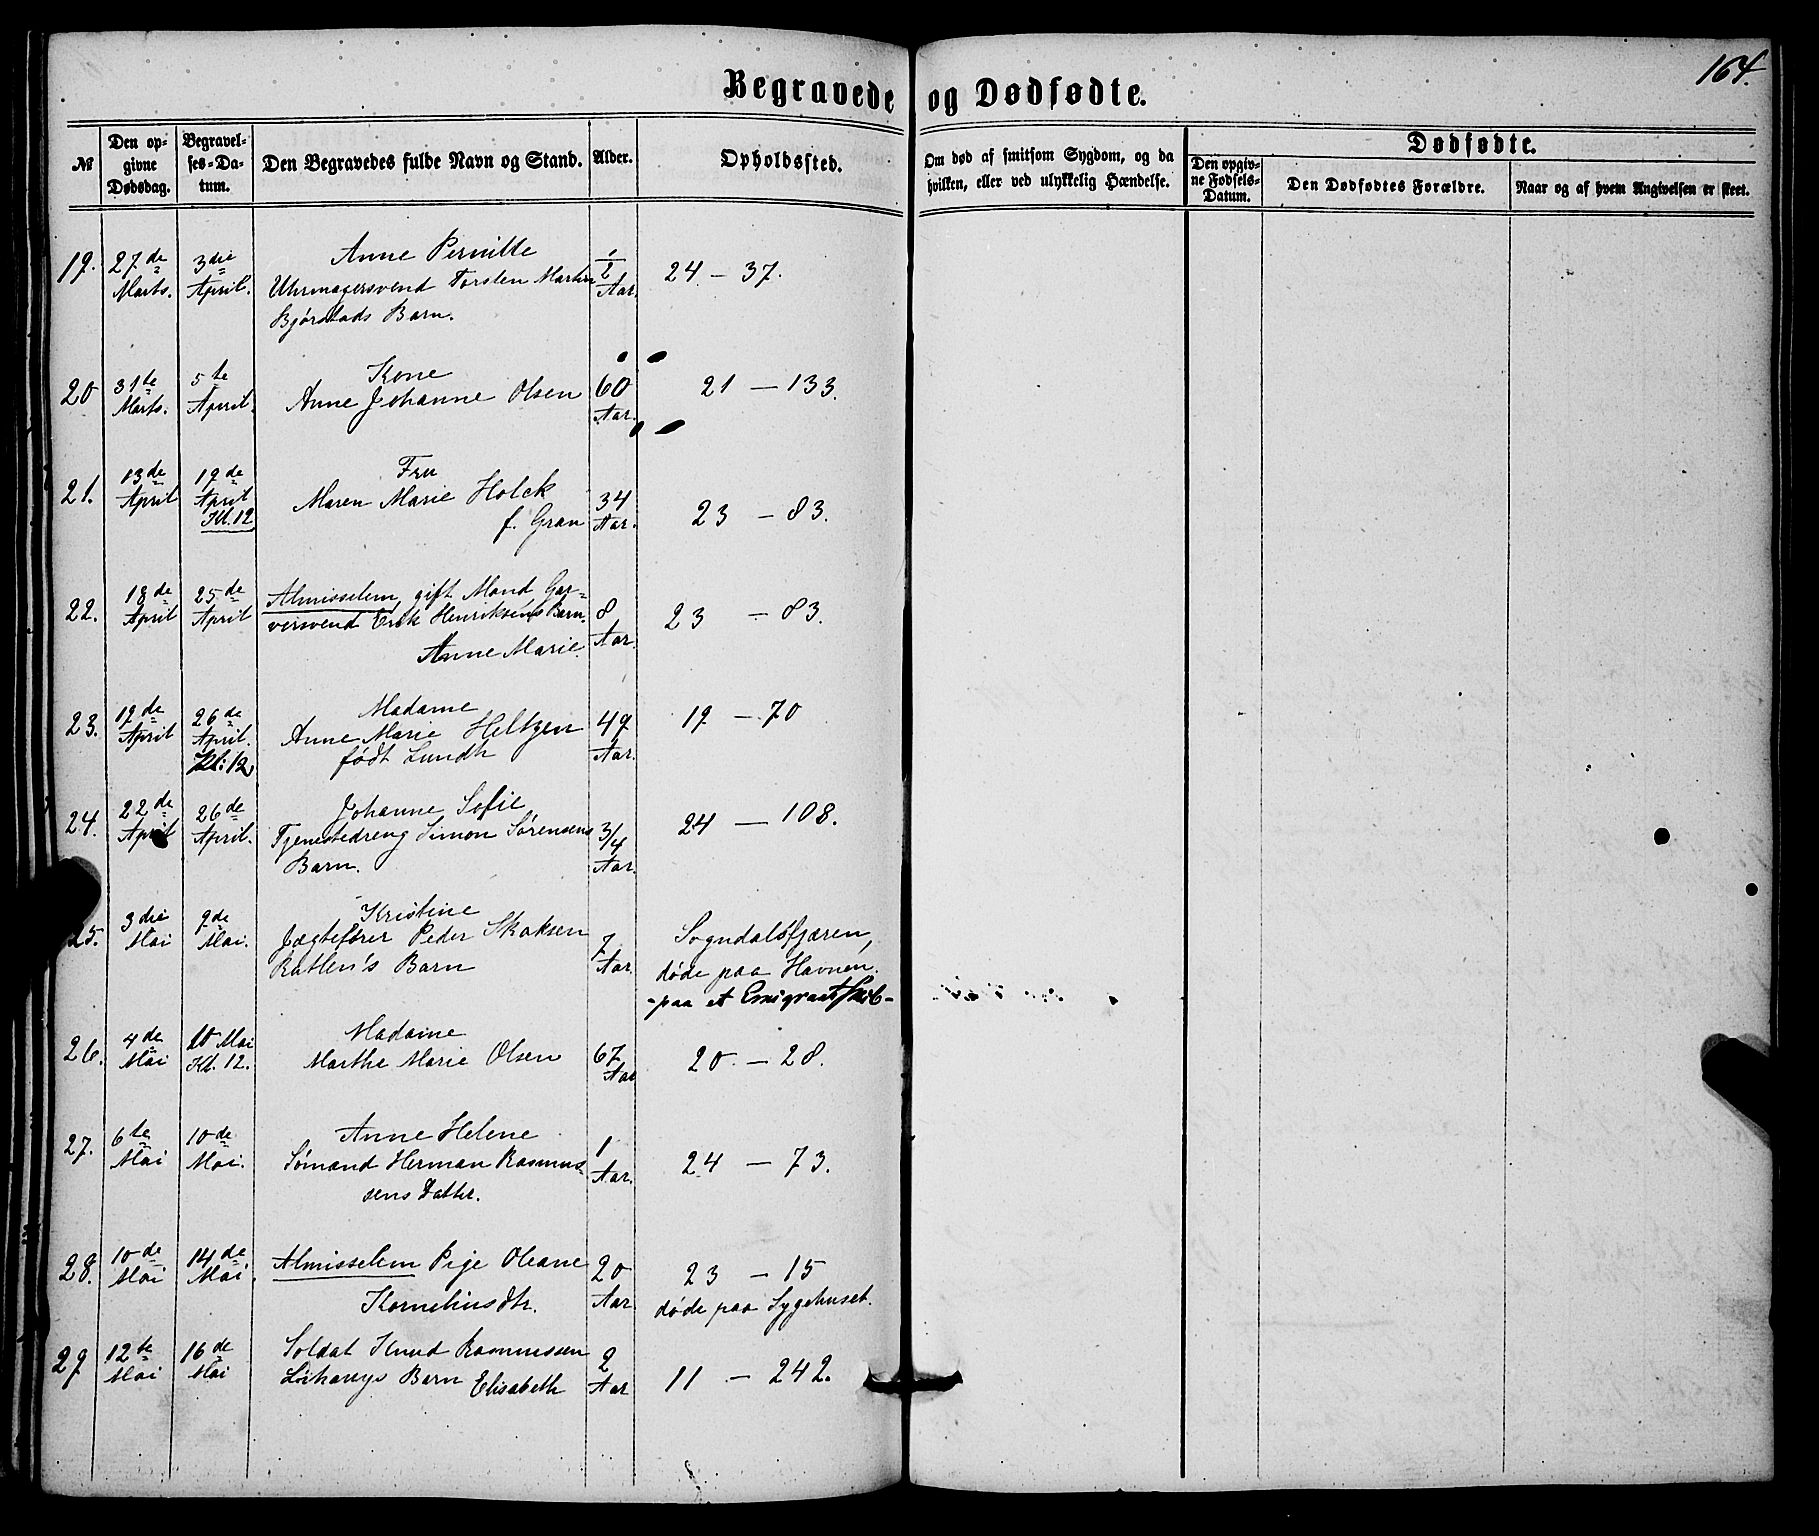 164.
Begravede og Dødfødte.
№
Den op-
givne
Dødsdag.
Begravel-
ses-Da-
tum.
Den Begravedes fulde Navn og Stand.
Alder.
Opholdssted.
Om død af smitsom Sygdom, og da
hvilken, eller ved ulykkelig Hændelse.
Dødfødte.
Den opgiv-
ne Fødsels-
Datum.
Den Dødfødtes Forældre.
Naar og af hvem Angivelsen er skeet.
19. 27de Marts. 3die April. Anne Pernille 1/2 Aar. 24 - 37.
Uhrmagersvend Torsten Martin
Bjørstads Barn.
20 31te Marts. 5te April. Kone 60 Aar. 21 - 133.
Anne Johanne Olsen
21. 13de April 19de April Kl. 12 Fru 34 Aar. 23 - 83.
Maren Marie Holck
f. Gran
22. 18de April 25de April Almisselem, gift Mand Gar- 8 Aar. 23 - 83.
versvend Erik Henriksens Barn
Anne Marie.
23. 19de April 26de April. Kl: 12 Madame 49 Aar. 19 - 70
Anne Marie Heltzen
født Lundh
24. 22de April 26de April. Johanne Sofie 3/4 Aar. 24 - 108.
Tjenestedreng Simon Sørensens
Barn.
25. 3die Mai 9de Mai. Kristine 7 Aar. Sogndalsfjæren,
Jægtefører Peder Skaksen døde paa Havnen.
Barn - paa et Emigrantskib -
26. 4de Mai 10 Mai Kl. 12. Madame 67 Aar 20 - 28.
Marthe Marie Olsen
27. 6te Mai 10de Mai. Anne Helene 1 Aar. 24 - 73.
Sømand Herman Rasmus-
sens Datter.
28. 10de Mai 14de Mai. Almisselem Pige Oleane 20 Aar. 23 - 15
Kornelius dtr. døde paa Sygehuset.
29 12te Mai 16de Mai Soldat Knud Rasmussen 2 Aar 11 - 242.
Barn Elisabeth